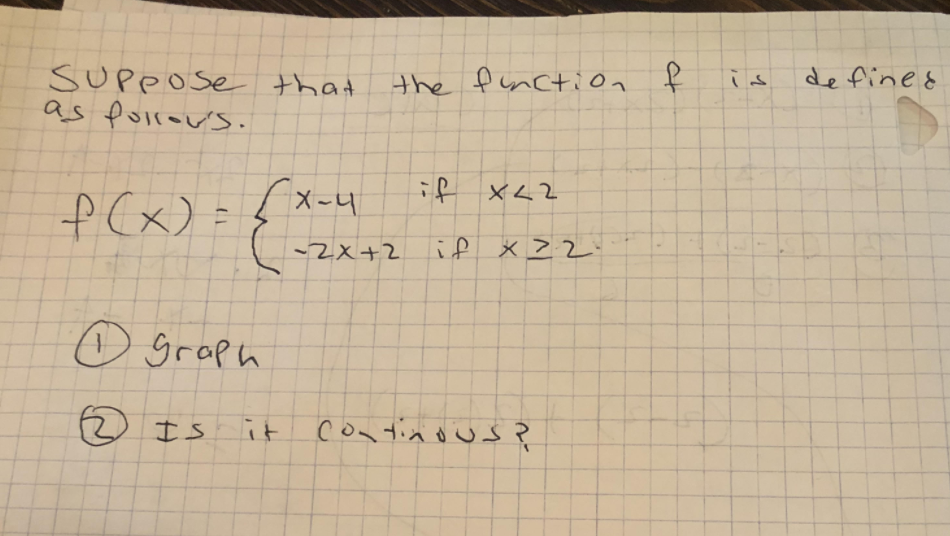 Suppose that the function f is defined
as follows.
f(x) = { x-4 if x<2
-2x+2 if x≥2.
① graph
② Is it continous?